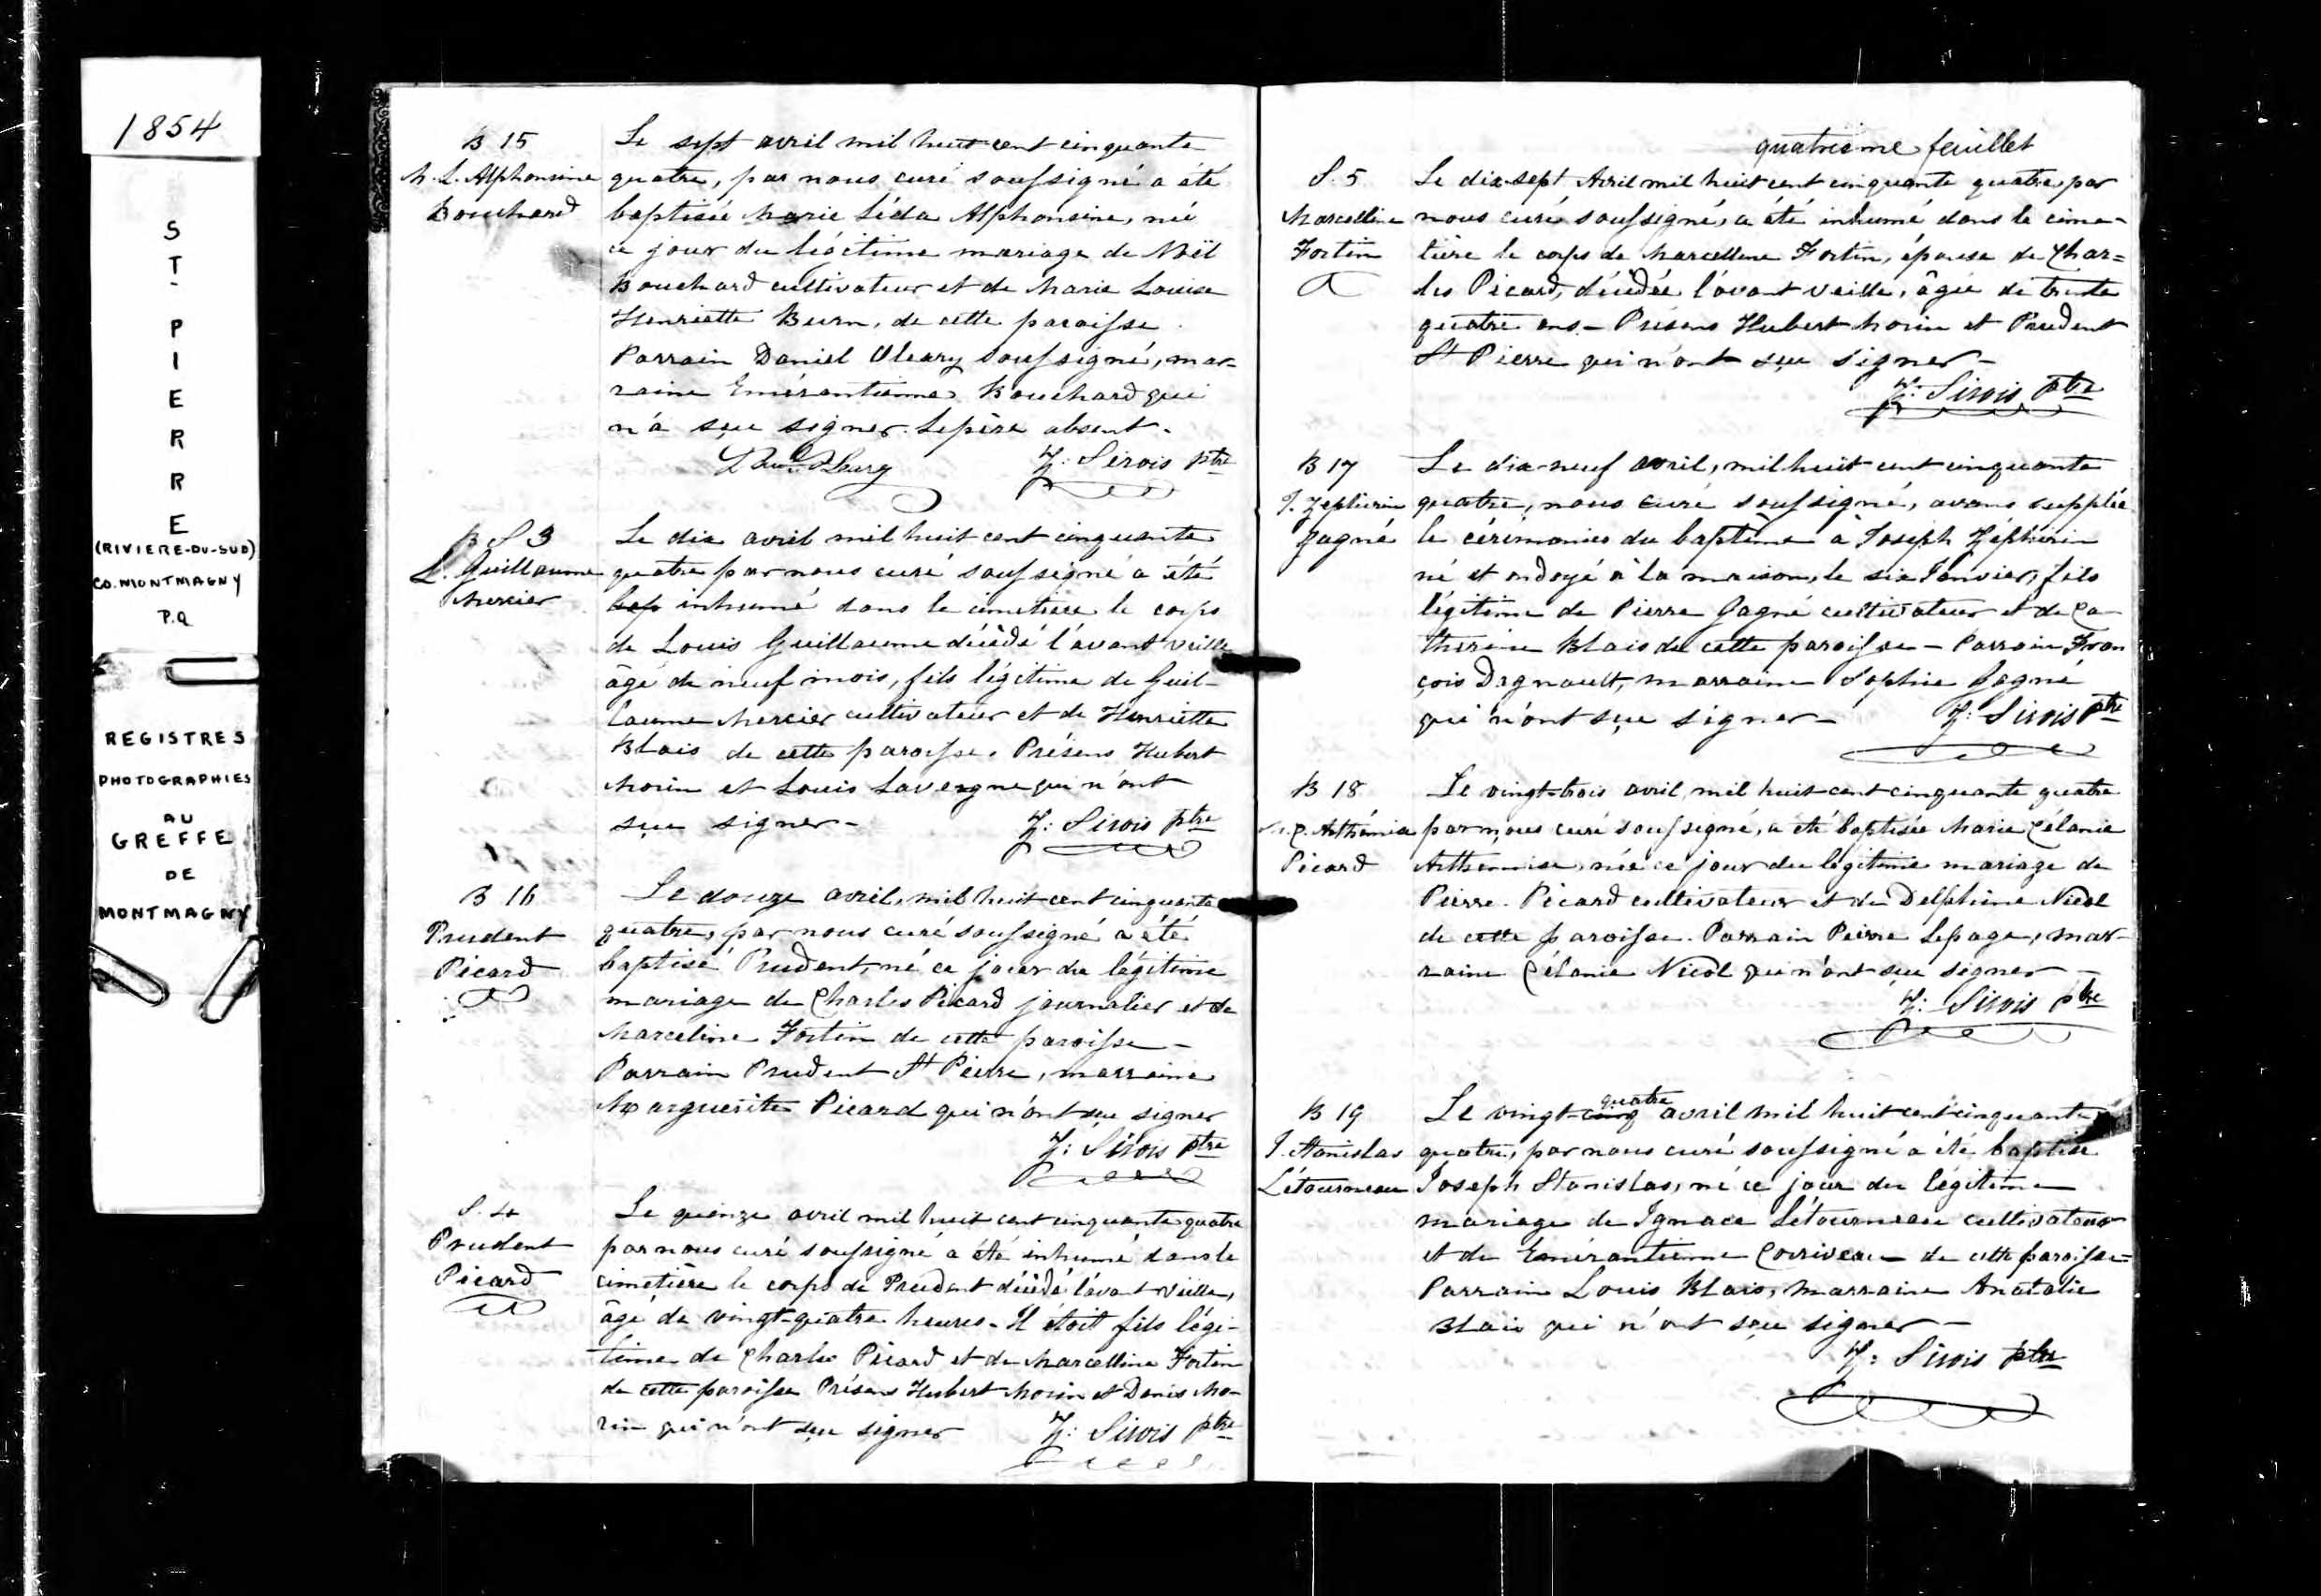 1854
ST. PIERRE
(RIVIERE-DU-SUD)
CO. MONTMAGNY
P.Q.
REGISTRES
PHOTOGRAPHIES
AU
GREFFE
DE
MONTMAGNY
B 15
M. L. Alphonsine
Bouchard
Le sept avril mil huit cent cinquante
quatre, par nous curé soussigné a été
baptisée Marie Léda Alphonsine, née
ce jour du légitime mariage de Noël
Bouchard cultivateur et de Marie Louise
Henriette Burn, de cette paroisse.
Parrain Daniel Oleary soussigné, mar-
raine Emérentienne Bouchard qui
n'a sçu signer. Le père absent.
Z: Sirois ptre
B S 3
L. Guillaume
Mercier
Le dix avril mil huit cent cinquante
quatre par nous curé soussigné a été
bap inhumé dans le cimetière le corps
de Louis Guillaume décédé l'avant veille
âgé de neuf mois, fils légitime de Guil-
laume Mercier cultivateur et de Henriette
Blais de cette paroisse. Présens Hubert
Morin et Louis Lavergne qui n'ont
sçu signer-
Z: Sirois ptre
B 16
Prudent
Picard
Le douze avril, mil huit cent cinquante
quatre, par nous curé soussigné a été
baptisé Prudent, né ce jour du légitime
mariage de Charles Picard journalier et de
Marceline Fortin de cette paroisse-
Parrain Prudent St Pierre, marraine
Marguerite Picard qui n'ont sçu signer
Z: Sirois ptre
S. 4
Prudent
Picard
Le quinze avril mil huit cent cinquante quatre
par nous curé soussigné a été inhumé dans le
cimetière le corps de Prudent décédé l'avant veille,
âgé de vingt-quatre heures. Il étoit fils légi-
time de Charles Picard et de Marcelline Fortin
de cette paroisse Présens Hubert Morin et Denis Mo-
rin qui n'ont sçu signer
Z: Sirois ptre
quatrième feuillet
S. 5
Marcelline
Fortin
Le dix-sept Avril mil huit cent cinquante quatre, par
nous curé soussigné, a été inhumé dans le cime-
tière le corps de Marcelline Fortin, épouse de Char=
les Picard, décédée l'avant veille, âgée de trente
quatre ans- Présens Hubert Morin et Prudent
St Pierre qui n'ont sçu signer-
Z: Sirois ptre
B 17
J. Zephirin
Gagné
Le dix-neuf avril, mil huit cent cinquante
quatre, nous curé soussigné, avons supplée
le cérémonies du baptême à Joseph Zéphirin
né et ondoyé à la maison, le six Janvier, fils
légitime de Pierre Gagné cultivateur et de Ca-
therine Blais de cette paroisse- Parrain Fran
çois Dagnault, marraine Sophie Gagné
qui n'ont sçu signer-
Z: Sirois ptre
B 18
M. C. Arthémise
Picard
Le vingt-trois avril, mil huit cent cinquante quatre
par nous curé soussigné, a été baptisée Marie Célanie
Arthemise, née ce jour du légitime mariage de
Pierre Picard cultivateur et de Delphine Nicol
de cette paroisse. Parrain Pierre Lepage, mar-
raine Célanie Nicol qui n'ont sçu signer-
Z: Sirois ptre
B 19
J. Stanislas
Létourneau
quatre
Le vingt-cinq avril mil huit cent cinquante
quatre, par nous curé soussigné a été baptisé
Joseph Stanislas, né ce jour du légitime
mariage de Ignace Létourneau cultivateur
et de Emérentienne Corriveau de cette paroisse=
Parrain Louis Blais, marraine Anatalie
Blais qui n'ont sçu signer-
Z: Sirois ptre